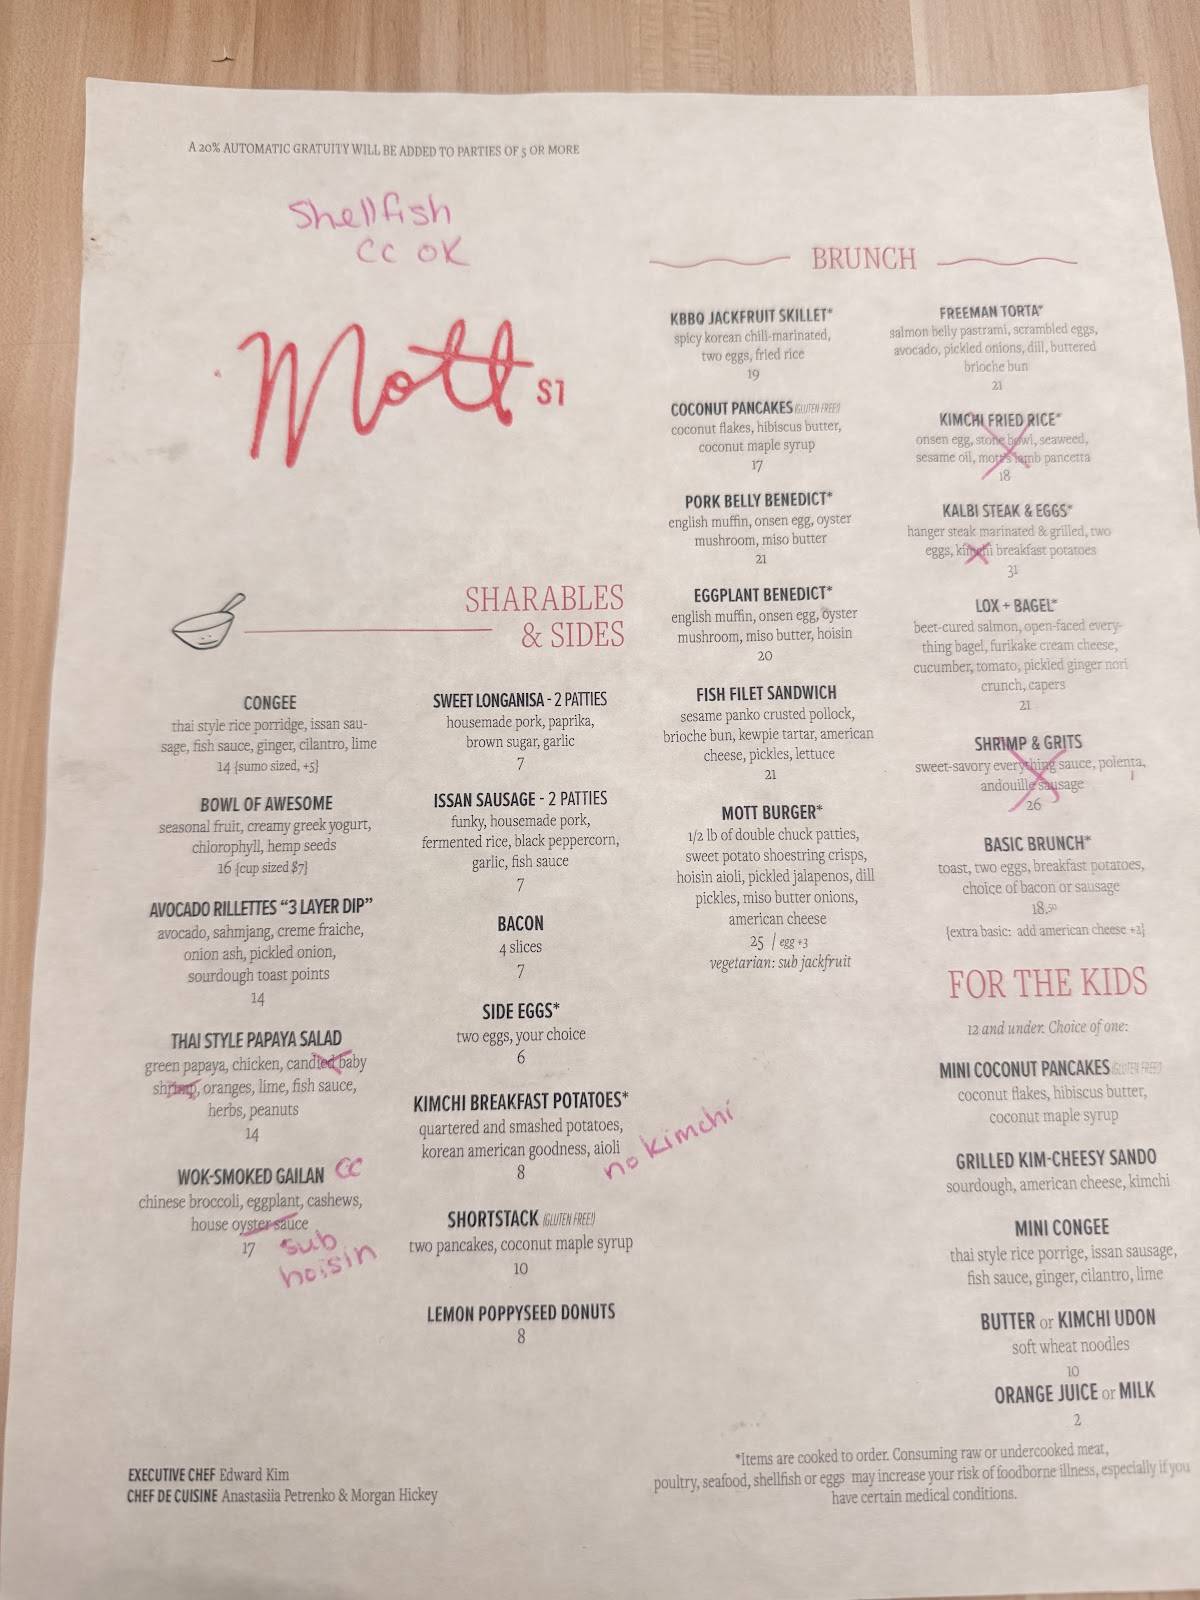 A 20% AUTOMATIC GRATUITY WILL BE ADDED TO PARTIES OF 5 OR MORE
Shellfish
CC OK
Mott ST
SHARABLES
& SIDES
CONGEE
thai style rice porridge, issan sau-
sage, fish sauce, ginger, cilantro, lime
14 {sumo sized, +5}
BOWL OF AWESOME
seasonal fruit, creamy greek yogurt,
chlorophyll, hemp seeds
16 {cup sized $7}
AVOCADO RILLETTES "3 LAYER DIP"
avocado, sahmjang, creme fraiche,
onion ash, pickled onion,
sourdough toast points
14
THAI STYLE PAPAYA SALAD
green papaya, chicken, candied baby
shrimp, oranges, lime, fish sauce,
herbs, peanuts
14
WOK-SMOKED GAILAN CC
chinese broccoli, eggplant, cashews,
house oyster sauce
17 sub
hoisin
SWEET LONGANISA - 2 PATTIES
housemade pork, paprika,
brown sugar, garlic
7
ISSAN SAUSAGE - 2 PATTIES
funky, housemade pork,
fermented rice, black peppercorn,
garlic, fish sauce
7
BACON
4 slices
7
SIDE EGGS*
two eggs, your choice
6
KIMCHI BREAKFAST POTATOES*
quartered and smashed potatoes,
korean american goodness, aioli
8
no kimchi
SHORTSTACK (GLUTEN FREE!)
two pancakes, coconut maple syrup
10
LEMON POPPYSEED DONUTS
8
BRUNCH
KBBQ JACKFRUIT SKILLET*
spicy korean chili-marinated,
two eggs, fried rice
19
COCONUT PANCAKES (GLUTEN FREE!)
coconut flakes, hibiscus butter,
coconut maple syrup
17
PORK BELLY BENEDICT*
english muffin, onsen egg, oyster
mushroom, miso butter
21
EGGPLANT BENEDICT*
english muffin, onsen egg, oyster
mushroom, miso butter, hoisin
20
FISH FILET SANDWICH
sesame panko crusted pollock,
brioche bun, kewpie tartar, american
cheese, pickles, lettuce
21
MOTT BURGER*
1/2 lb of double chuck patties,
sweet potato shoestring crisps,
hoisin aioli, pickled jalapenos, dill
pickles, miso butter onions,
american cheese
25 / egg +3
vegetarian: sub jackfruit
FREEMAN TORTA*
salmon belly pastrami, scrambled eggs,
avocado, pickled onions, dill, buttered
brioche bun
21
KIMCHI FRIED RICE*
onsen egg, stone bowl, seaweed,
sesame oil, mott's lamb pancetta
18
KALBI STEAK & EGGS*
hanger steak marinated & grilled, two
eggs, kimchi breakfast potatoes
31
LOX + BAGEL*
beet-cured salmon, open-faced every-
thing bagel, furikake cream cheese,
cucumber, tomato, pickled ginger nori
crunch, capers
21
SHRIMP & GRITS
sweet-savory everything sauce, polenta,
andouille sausage
26
BASIC BRUNCH*
toast, two eggs, breakfast potatoes,
choice of bacon or sausage
18.50
{extra basic: add american cheese +2}
FOR THE KIDS
12 and under. Choice of one:
MINI COCONUT PANCAKES (GLUTEN FREE!)
coconut flakes, hibiscus butter,
coconut maple syrup
GRILLED KIM-CHEESY SANDO
sourdough, american cheese, kimchi
MINI CONGEE
thai style rice porrige, issan sausage,
fish sauce, ginger, cilantro, lime
BUTTER or KIMCHI UDON
soft wheat noodles
10
ORANGE JUICE or MILK
2
EXECUTIVE CHEF Edward Kim
CHEF DE CUISINE Anastasiia Petrenko & Morgan Hickey
*Items are cooked to order. Consuming raw or undercooked meat,
poultry, seafood, shellfish or eggs may increase your risk of foodborne illness, especially if you
have certain medical conditions.